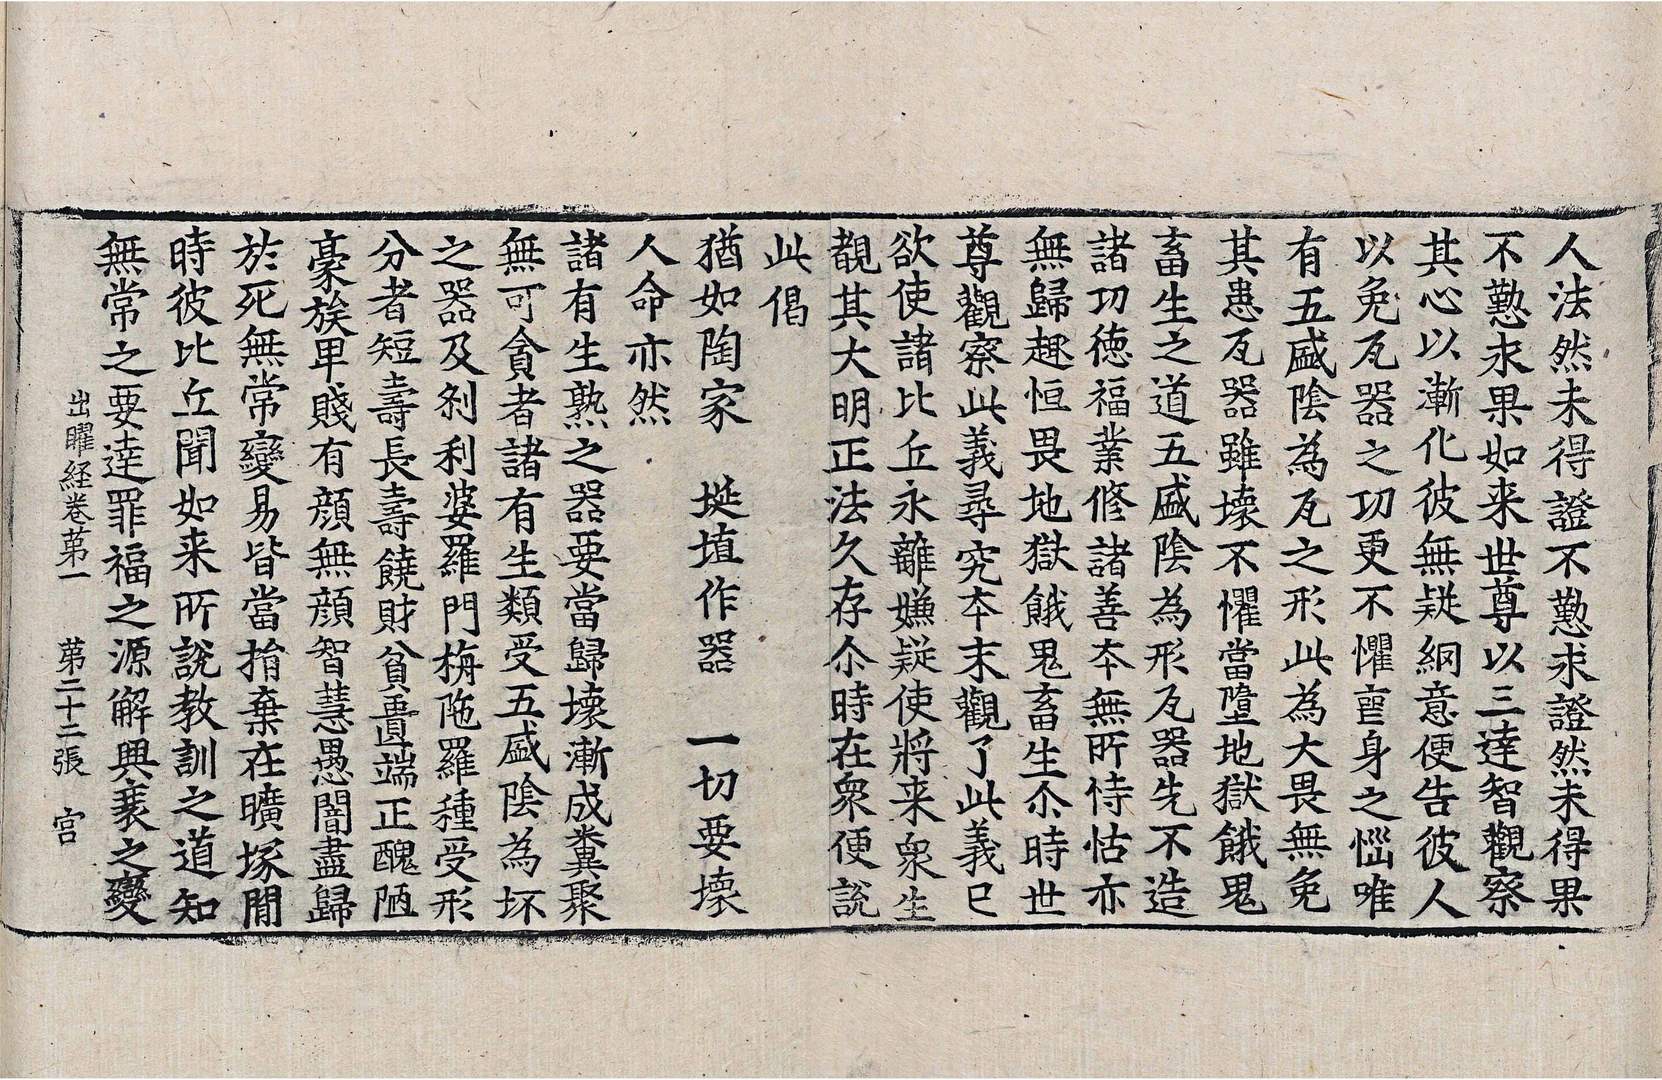 人法然未得證不懃求證然未得果
不懃求果如来世尊以三達智觀察
其心以漸化彼無疑網意便告彼人
以免瓦器之功更不懼喪身之惱唯
有五盛陰為瓦之形此為大畏無免
其患瓦器雖壞不懼當墮地獄餓鬼
畜生之道五盛陰為形瓦器先不造
諸功德福業修諸善夲無所恃怙亦
無歸趣恒畏地獄餓鬼畜生尒時世
尊觀察此義尋究夲末觀了此義已
欲使諸比丘永離嫌疑使將来衆生
覩其大明正法久存尒時在衆便說
此偈
猶如陶家　埏埴作器　一切要壞
人命亦然
諸有生熟之器要當歸壞漸成糞聚
無可貪者諸有生類受五盛陰為坏
之器及剎利婆羅門栴陁羅種受形
分者短壽長壽饒財貧遺端正醜陋
豪族卑賤有顔無顔智慧愚闇盡歸
於死無常變易皆當捐棄在曠塚間
時彼比丘聞如来所說教訓之道知
無常之要達罪福之源解興衰之變
出曜経卷苐一　苐二十二張　宫